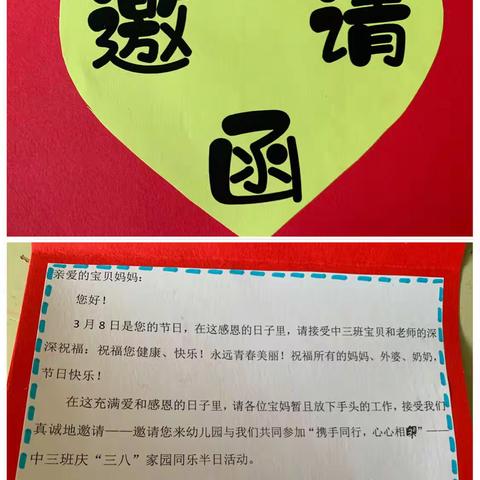 邀请
函
亲爱的宝贝妈妈：
您好！
3月8日是您的节日，在这感恩的日子里，请接受中三班宝贝和老师的深
深祝福：祝福您健康、快乐！永远青春美丽！祝福所有的妈妈、外婆、奶奶，
节日快乐！
在这充满爱和感恩的日子里，请各位宝妈暂且放下手头的工作，接受我们
真诚地邀请——邀请您来幼儿园与我们共同参加“携手同行，心心相印”——
中三班庆“三八”家园同乐半日活动。